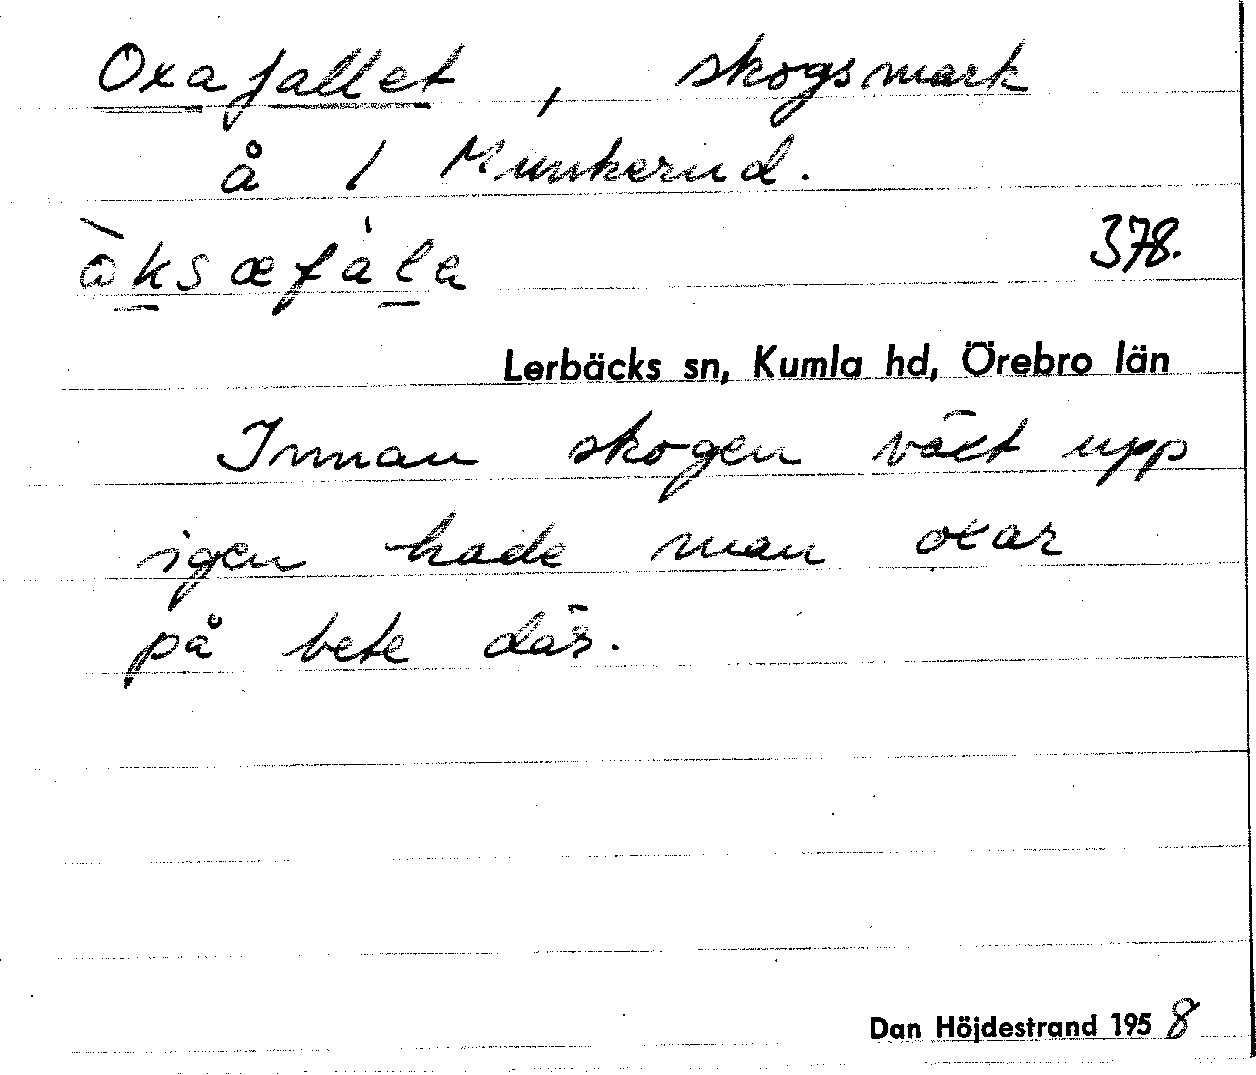 Oxafallet, skogsmark
å 1 Munkerud.
àksæfàla
378.
Lerbäcks sn, Kumla hd, Örebro län
Innan skogen växt upp
igen hade man oxar
på bete där.
Dan Höjdestrand 1958